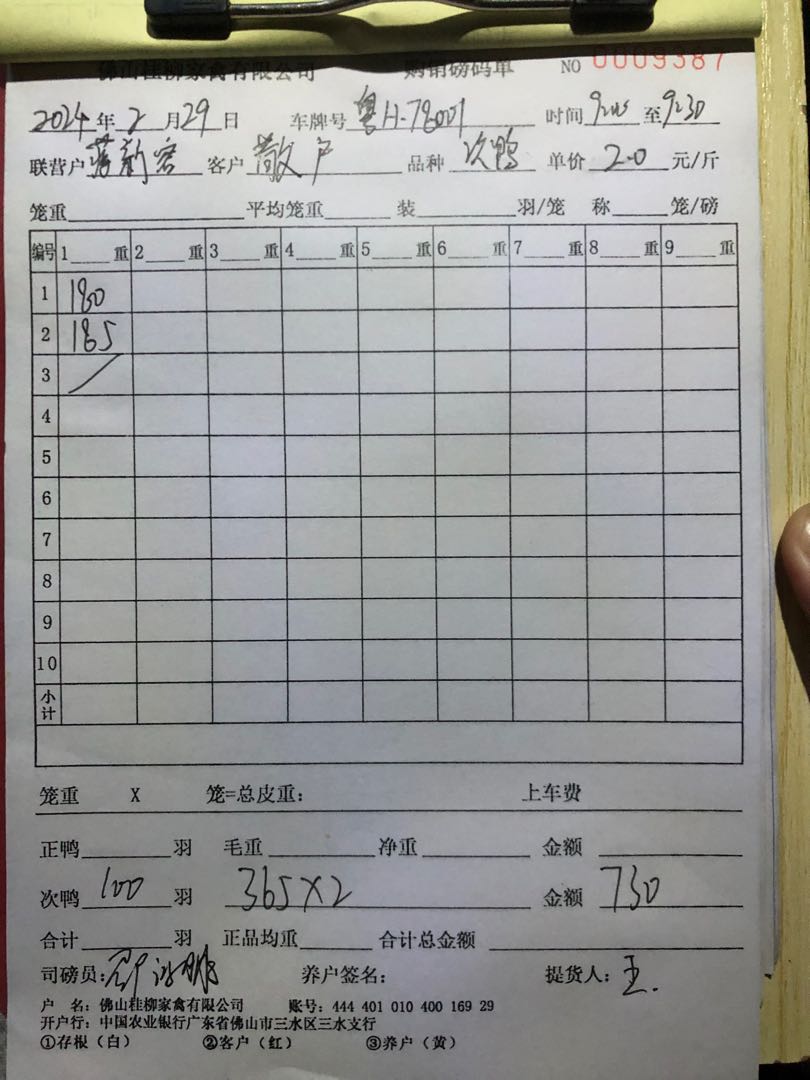 佛山桂柳家禽有限公司 购销磅码单 NO 0009387
2024年2月29日 车牌号 粤H-78001 时间 9:00 至 9:30
联营户 蒋新容 客户 散户 品种 次鸭 单价 2.0 元/斤
笼重 平均笼重 装 羽/笼 称 笼/磅
编号 1 重 2 重 3 重 4 重 5 重 6 重 7 重 8 重 9 重
1 180
2 185
3 /
4
5
6
7
8
9
10
小计
笼重 X 笼=总皮重: 上车费
正鸭 羽 毛重 净重 金额
次鸭 100 羽 365×2 金额 730
合计 羽 正品均重 合计总金额
司磅员: 养户签名: 提货人: 王.
户 名: 佛山桂柳家禽有限公司 账号: 444 401 010 400 169 29
开户行: 中国农业银行广东省佛山市三水区三水支行
①存根（白） ②客户（红） ③养户（黄）